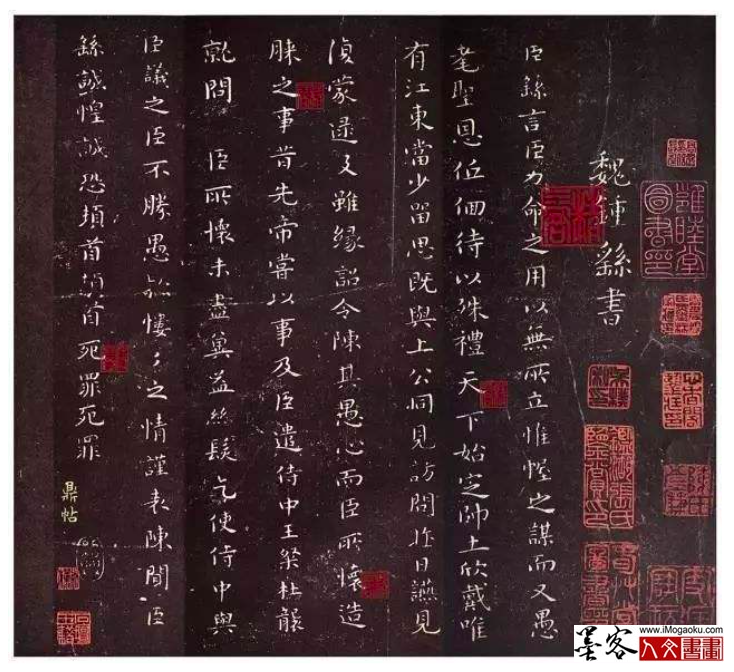 魏鍾繇書
臣繇言臣力命之用以無所立惟幄之謀而又愚
耄聖恩低佪待以殊禮天下始定帥土欣戴唯
有江東當少留思既與上公同見訪問昨日讌見
復蒙逮及雖緣詔令陳其愚心而臣所懷造
膝之事昔先帝嘗以事及臣遣侍中王粲杜襲
就問 臣所懷未盡冀益絲髮乞使侍中與
臣議之臣不勝愚款慺々之情謹表陳聞臣
繇誠惶誠恐頓首頓首死罪死罪
鼎帖
墨客 www.iMogaoku.com
人文書畫